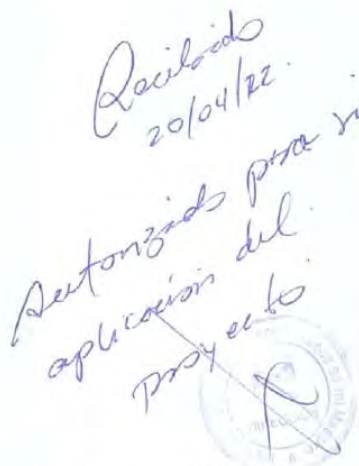 Recibido
20/04/22.
Autorizado para su
aplicación del
proyecto